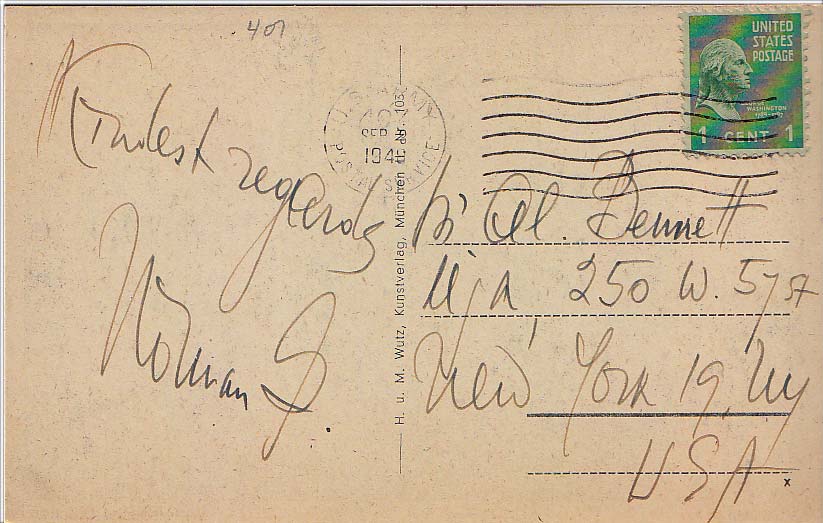 401
Kindest regards
Norman G.
U.S. ARMY
SEP
194
POSTAL SERVICE
UNITED
STATES
POSTAGE
WASHINGTON
1 CENT 1
H. u. M. Wutz, Kunstverlag, München
Al. Bennett
250 W. 57 st
New York 19, NY
USA
x